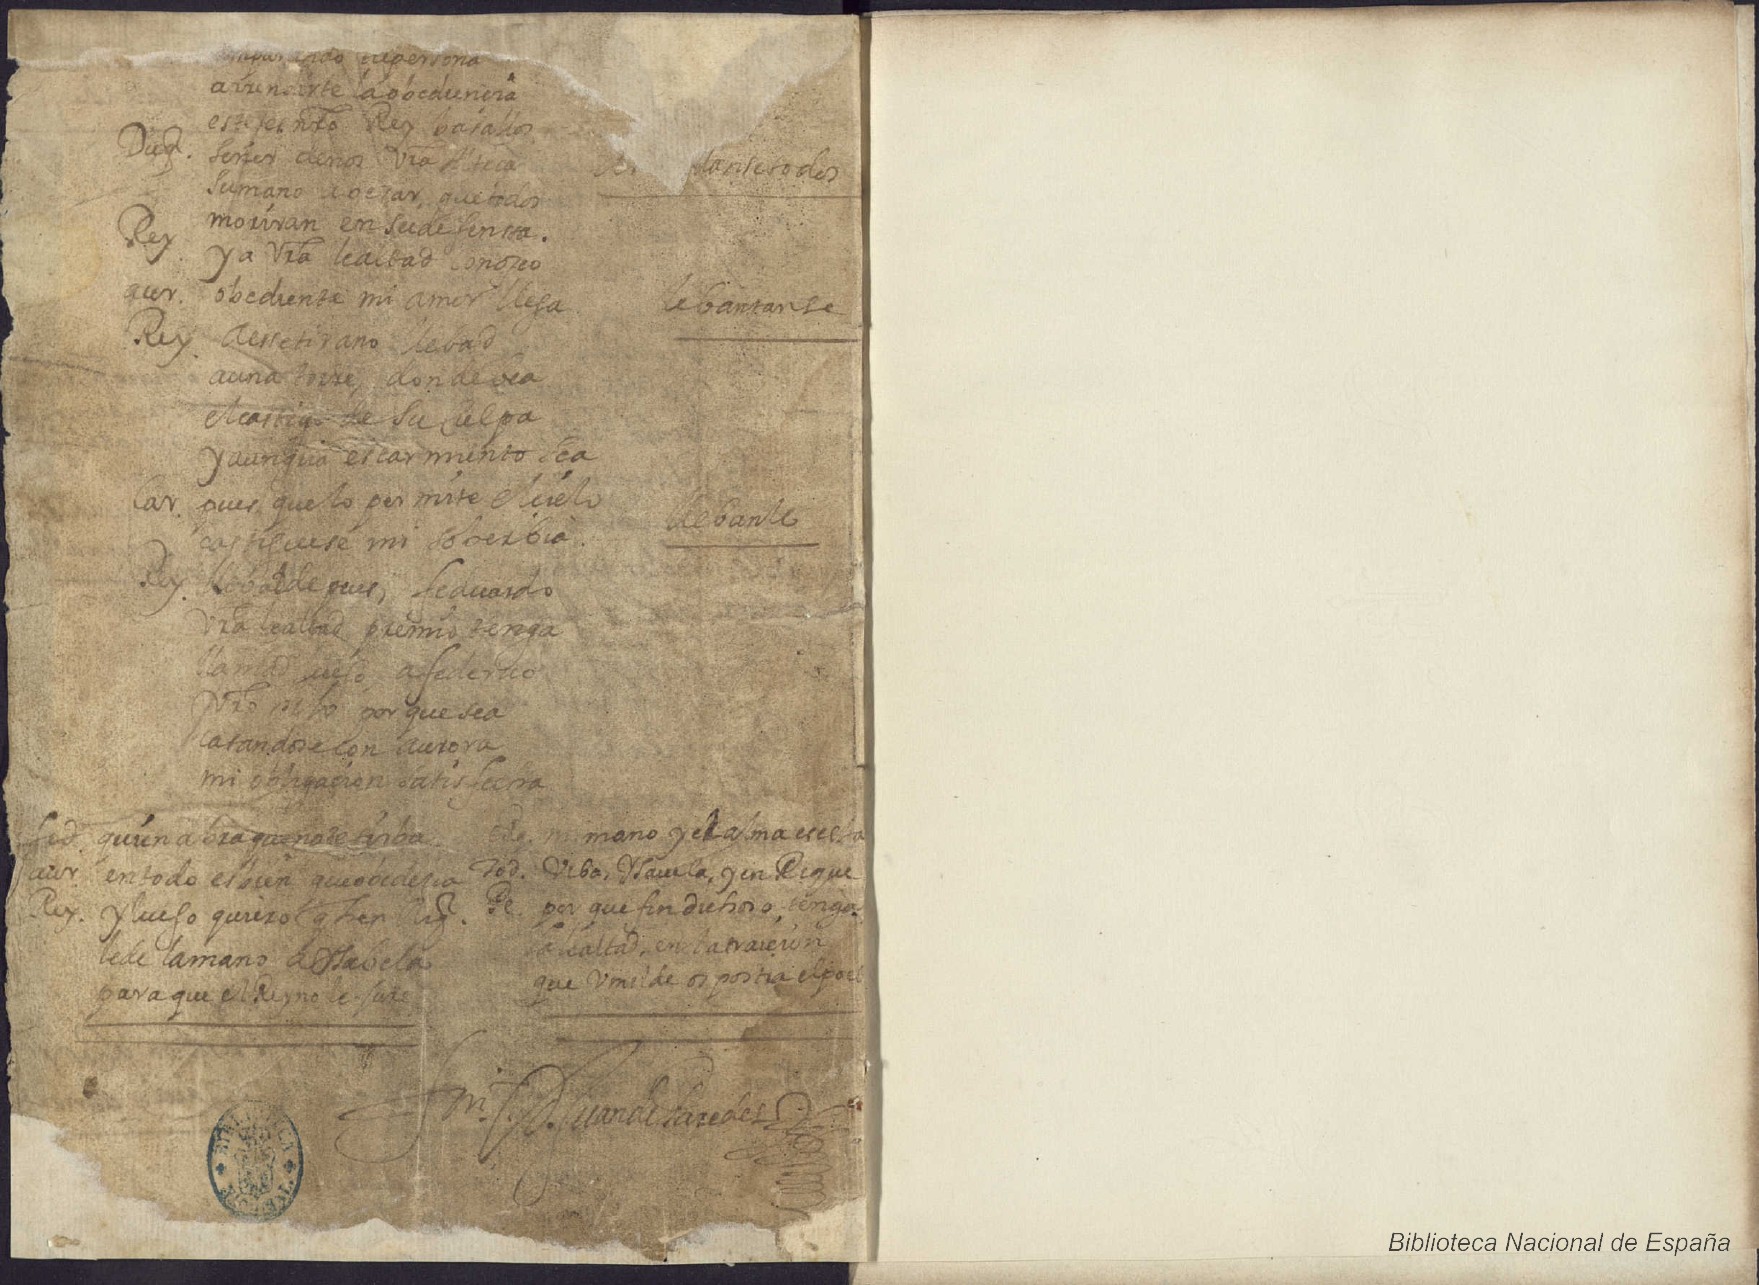 su persona
a rendirte la obediencia
este es nrõ Rey basallos
Duq. señor denos Vrã Alteça
su mano a besar, que todos
moriran en su defensa.
Rey ya Vrã lealtad conozco
aur. obediente mi amor llega
Rey a esse tirano llebad
a una torre, donde vea
el castigo de su culpa
y aunque escarmiento sea
Car. pues que lo permite el cielo
castiguese mi soberbia.
Rey. llebalde pues, feduardo
Vrã lealtad premio tenga
llamad luego a federico
Vrõ hijo porque sea
casandose con aurora
mi obligacion satisfecha
lantse todos
lebantanse
llebanle
fed. quien abra que no se turba.
aur. en todo es bien que obedezca
Rey. y luego quiero q
le de la mano a Ysabela
para que el Reyno le jure
mi mano y el alma es esta
Tod. Viba, Ysavela, y en Rique
por que fin dichoso, tenga
la lealtad, en la traicion
que Vmilde os postra el poe
D. Juan de Paredes
BIBLIOTECA NACIONAL
Biblioteca Nacional de España